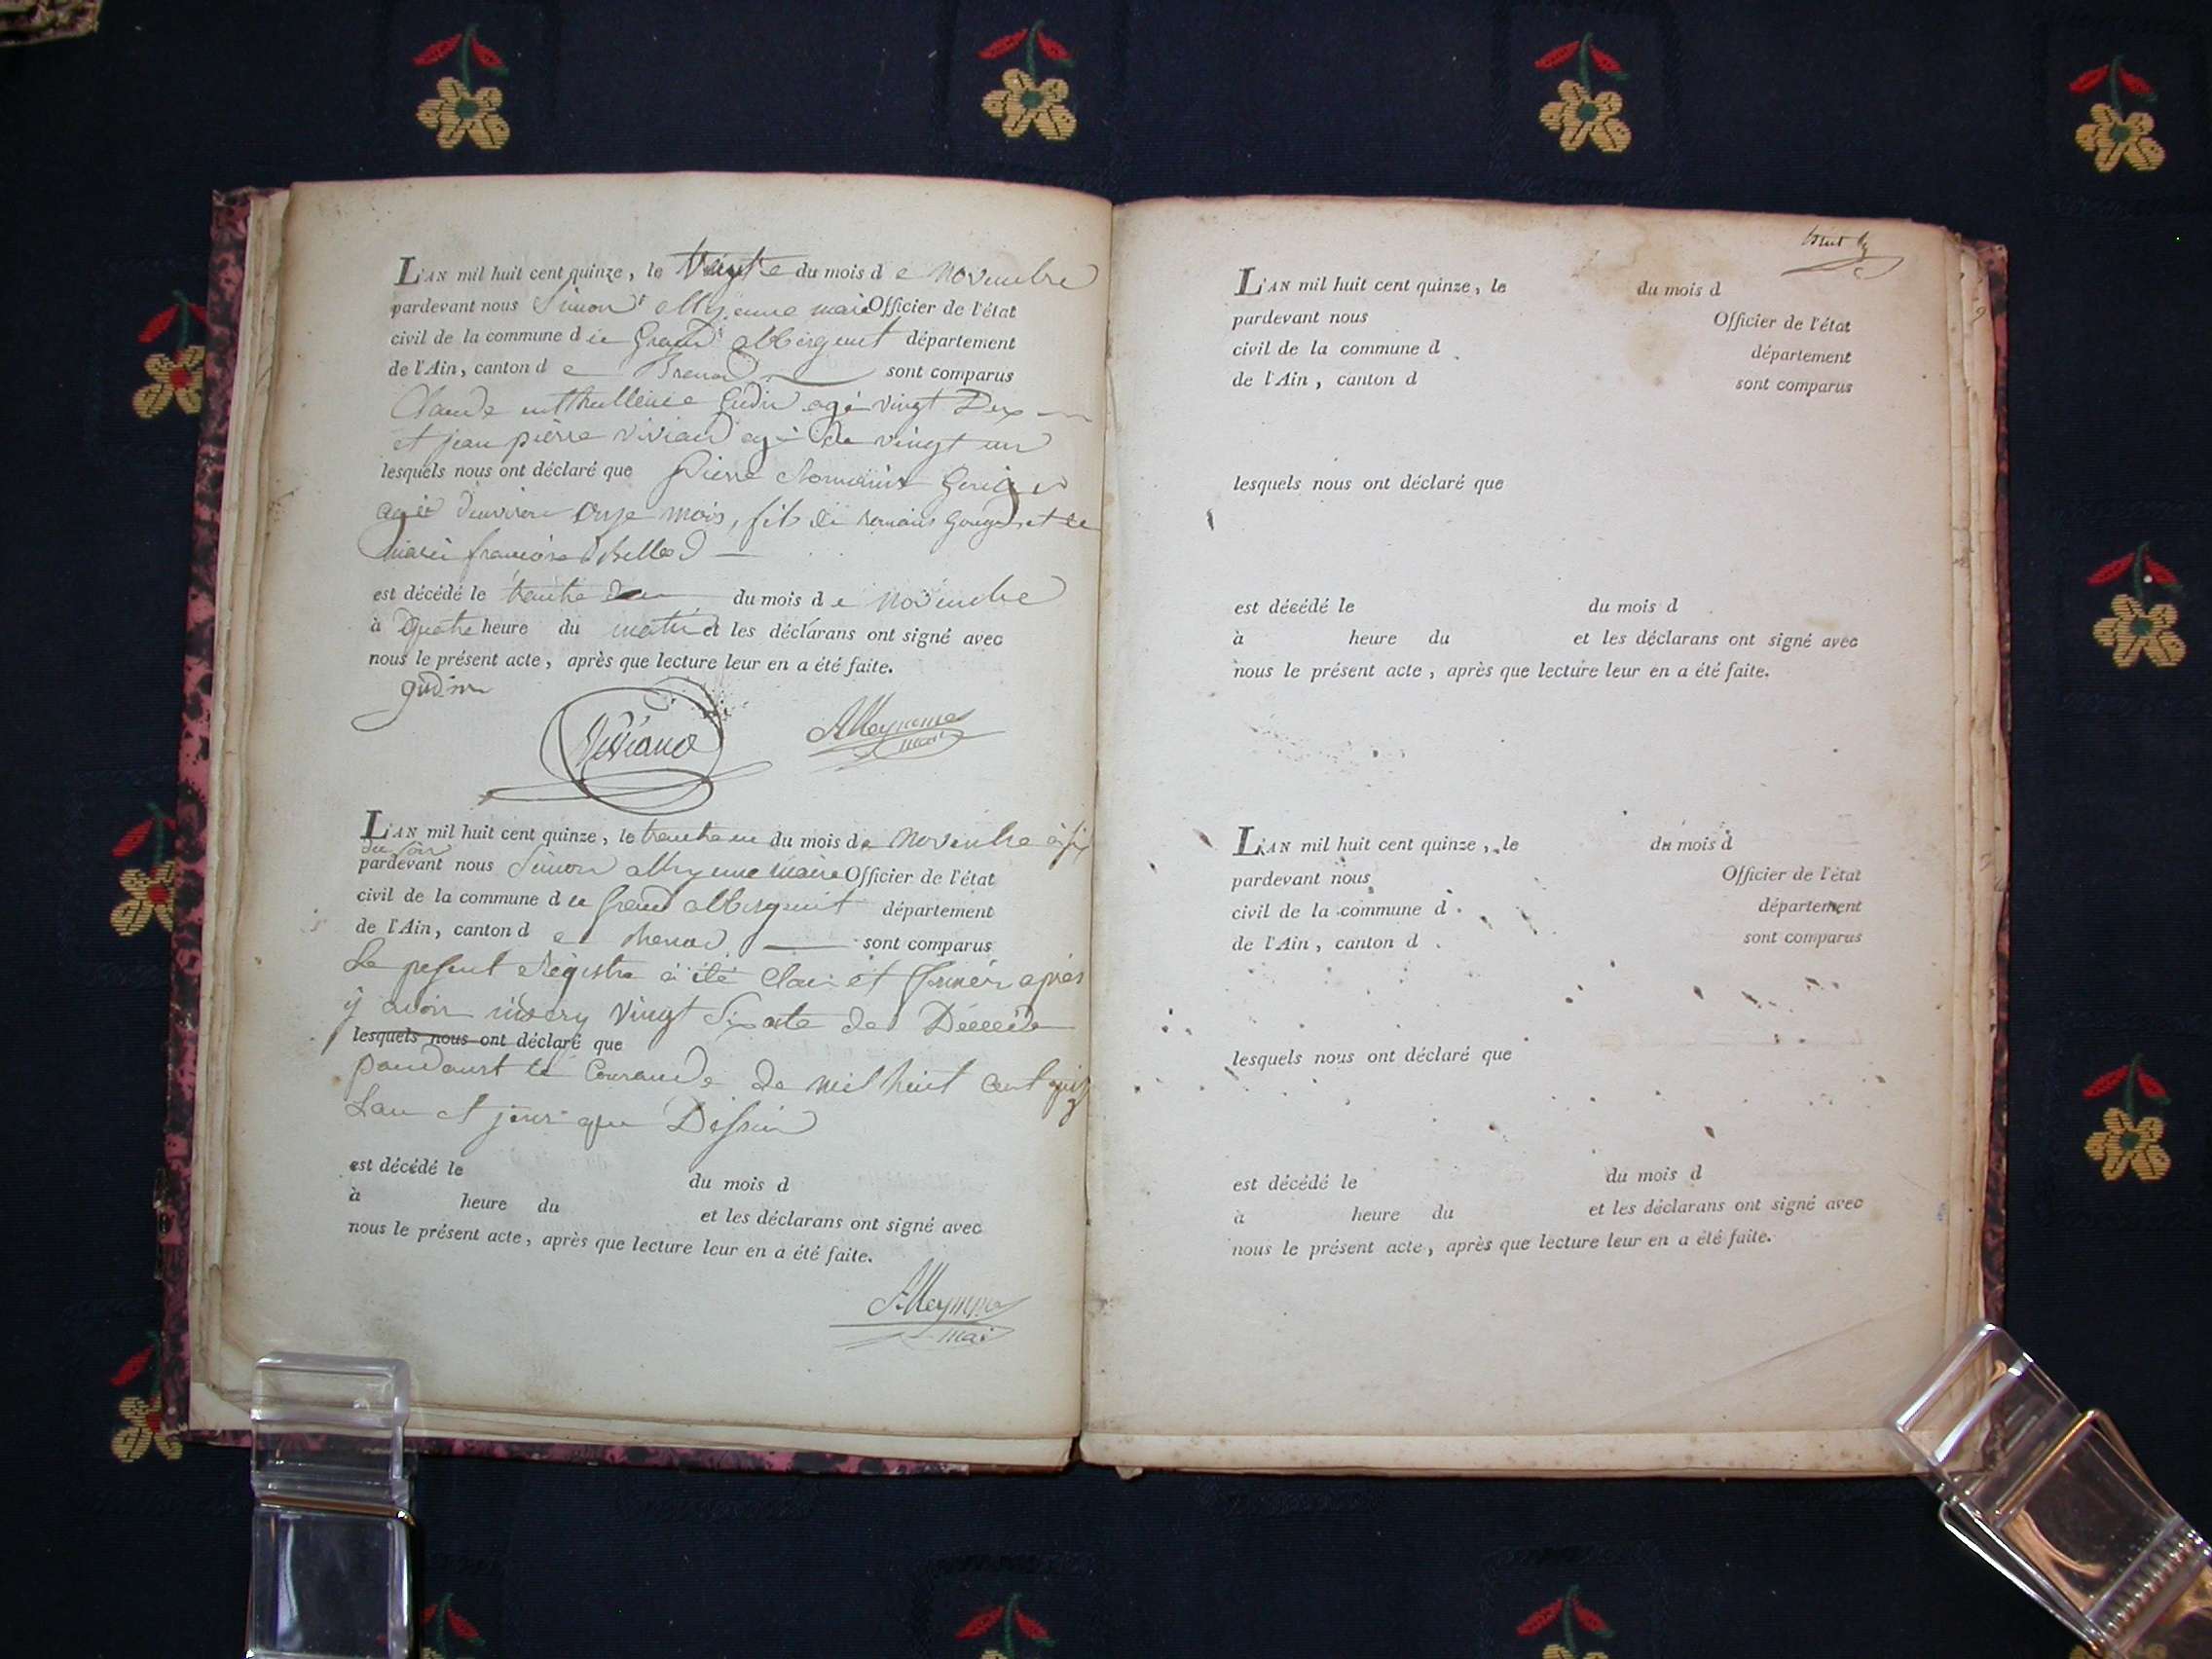 L'AN mil huit cent quinze, le du mois de novembre
pardevant nous Simon maire Officier de l'état
civil de la commune d du Grand Abbergeent département
de l'Ain, canton de Brenod sont comparus
Claude Gudin agé vingt Dex
et jean pierre Viviand agé de vingt un
lesquels nous ont déclaré que Pierre
d'environ onze mois, fils de et de
marie françoise
est décédé le trante du mois de novembre
à quatre heure du matin et les déclarans ont signé avec
nous le présent acte, après que lecture leur en a été faite.
gudin
Viviand
maire
L'AN mil huit cent quinze, le trante un du mois de novembre à six
du soir
pardevant nous Simon maire Officier de l'état
civil de la commune d du grand abbergement département
de l'Ain, canton de Brenod sont comparus
Le present Registre à été Clau et après
y avoir vingt Six acte de Décéde
lesquels nous ont déclaré que
pandaust le Courande de mil huit cent quinz
Lan et jour que Dessu
est décédé le du mois d
à heure du et les déclarans ont signé avec
nous le présent acte, après que lecture leur en a été faite.
mai
L'AN mil huit cent quinze, le du mois d
pardevant nous Officier de l'état
civil de la commune d département
de l'Ain, canton d sont comparus
lesquels nous ont déclaré que
est décédé le du mois d
à heure du et les déclarans ont signé avec
nous le présent acte, après que lecture leur en a été faite.
L'AN mil huit cent quinze, le du mois d
pardevant nous Officier de l'état
civil de la commune d département
de l'Ain, canton d sont comparus
lesquels nous ont déclaré que
est décédé le du mois d
à heure du et les déclarans ont signé avec
nous le présent acte, après que lecture leur en a été faite.